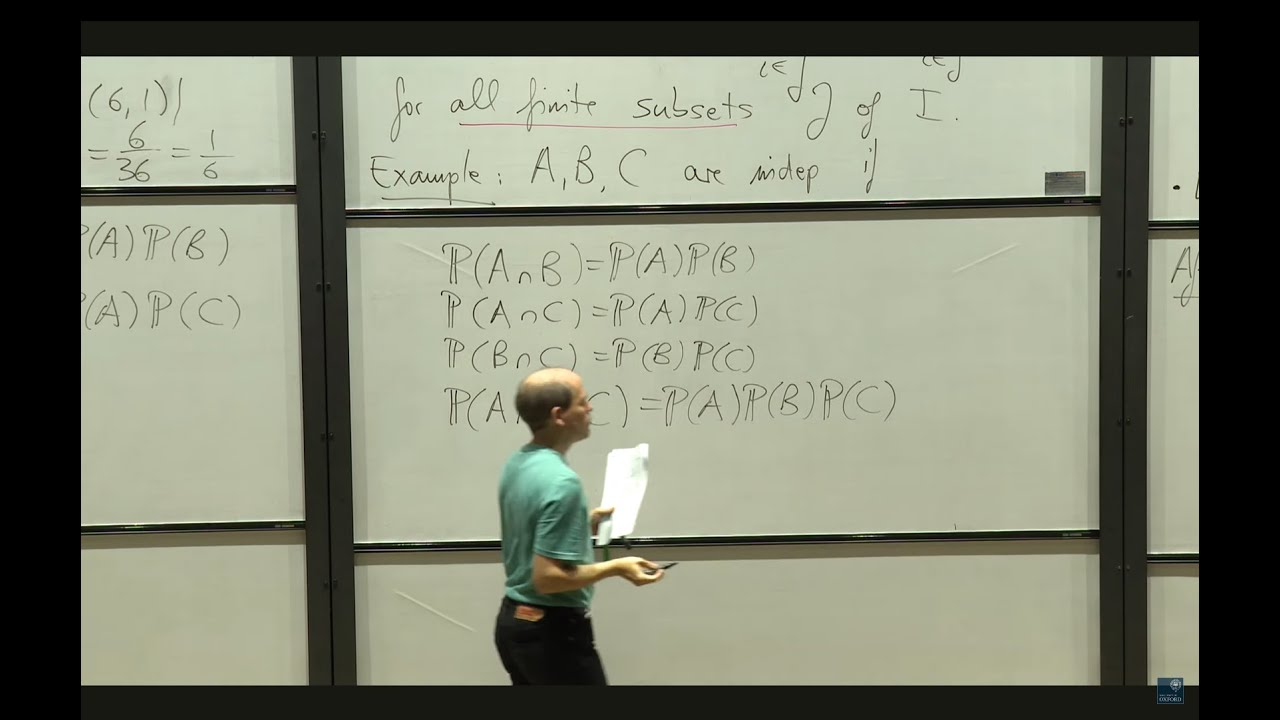 (6,1)|
= 6/36 = 1/6
P(A)ℙ(B)
(A)ℙ(C)
i∈J i∈J
for all finite subsets J of I.
Example: A, B, C are indep if
ℙ(A∩B)=ℙ(A)ℙ(B)
ℙ(A∩C)=ℙ(A)ℙ(C)
ℙ(B∩C)=ℙ(B)ℙ(C)
ℙ(A C)=ℙ(A)ℙ(B)ℙ(C)
OXFORD